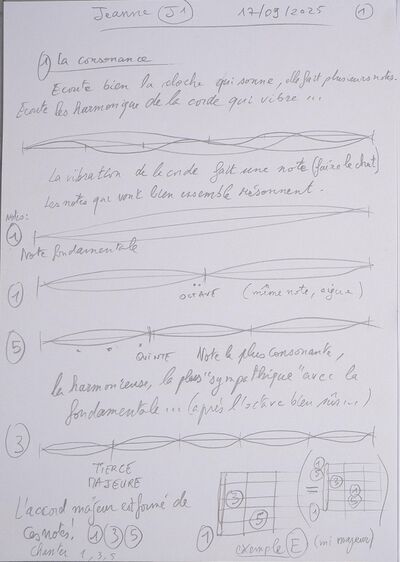 Jeanne J1 17/09/2025 1
1 La consonance
Ecoute bien la cloche qui sonne, elle fait plusieurs notes.
Ecoute les harmonique de la corde qui vibre ...
La vibration de la corde fait une note (faire le chat)
Les notes qui vont bien ensemble résonnent.
Notes:
1
Note fondamentale
1
OCTAVE (même note, aigue)
5
QUINTE Note la plus consonante,
la harmonieuse, la plus "sympathique" avec la
fondamentale ... (après l'octave bien sûr...)
3
TIERCE
MAJEURE
L'accord majeur est formé de
ces notes! 1 3 5
Chanter 1, 3, 5
1 3 5
= 5 1 3 1 5 1
exemple E (mi majeur)